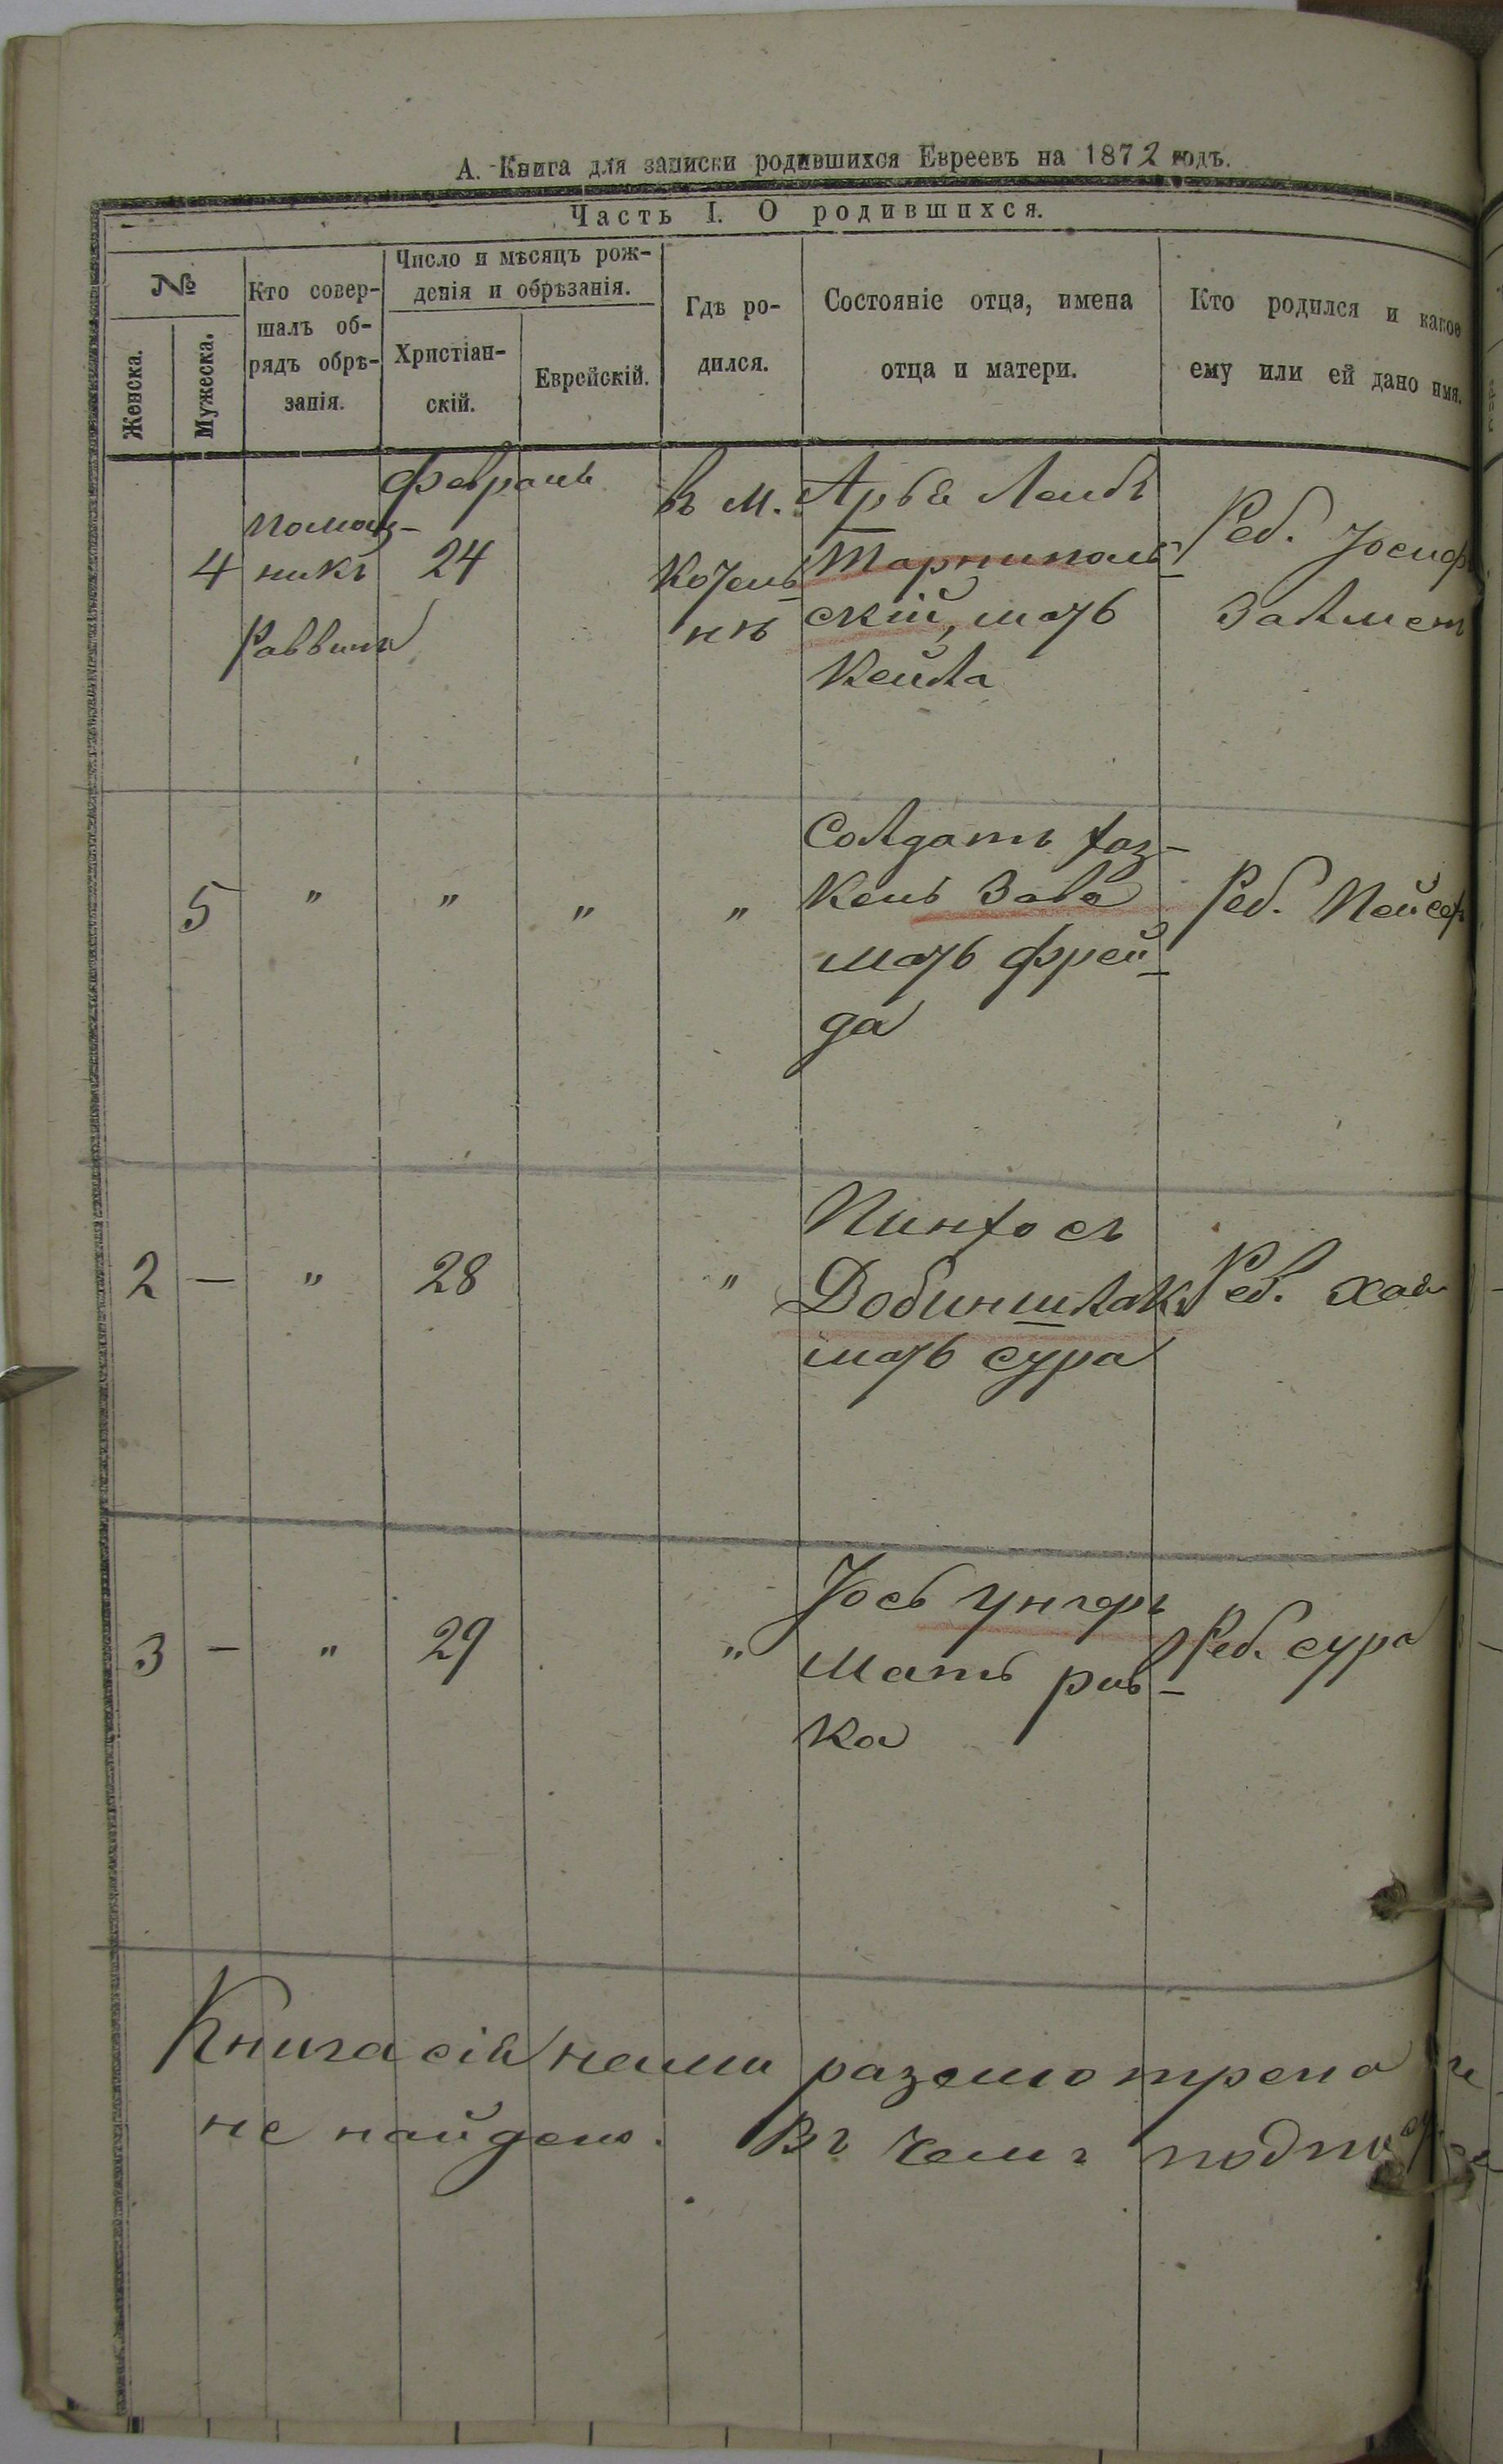 А. Книга для записки родившихся Евреевъ на 1872 годъ.
Часть I. О родившихся.
№
Женска.
Мужеска.
Кто совер-
шалъ об-
рядъ обрѣ-
занія.
Число и мѣсяцъ рож-
денія и обрѣзанія.
Христіан-
скій.
Еврейскій.
Гдѣ ро-
дился.
Состояніе отца, имена
отца и матери.
Кто родился и какое
ему или ей дано имя.
Февраль
4
помощ-
никъ
Раввина
24
въ м.
нѣ
Арье Лейбъ
Тарниполь-
скій, мать
Кейла
Реб. Іосиф
Залмен
5
"
"
"
"
Солдатъ
мать Фрей-
да
Реб.
2
—
"
28
"
Пинхосъ
Добиншлакъ
мать сура
Реб. Хая
3
—
"
29
"
Іось Унгеръ
Мать рив-
ка
Реб. сура
Книга сія нами разсмотрена и
не найдено. Въ чемъ